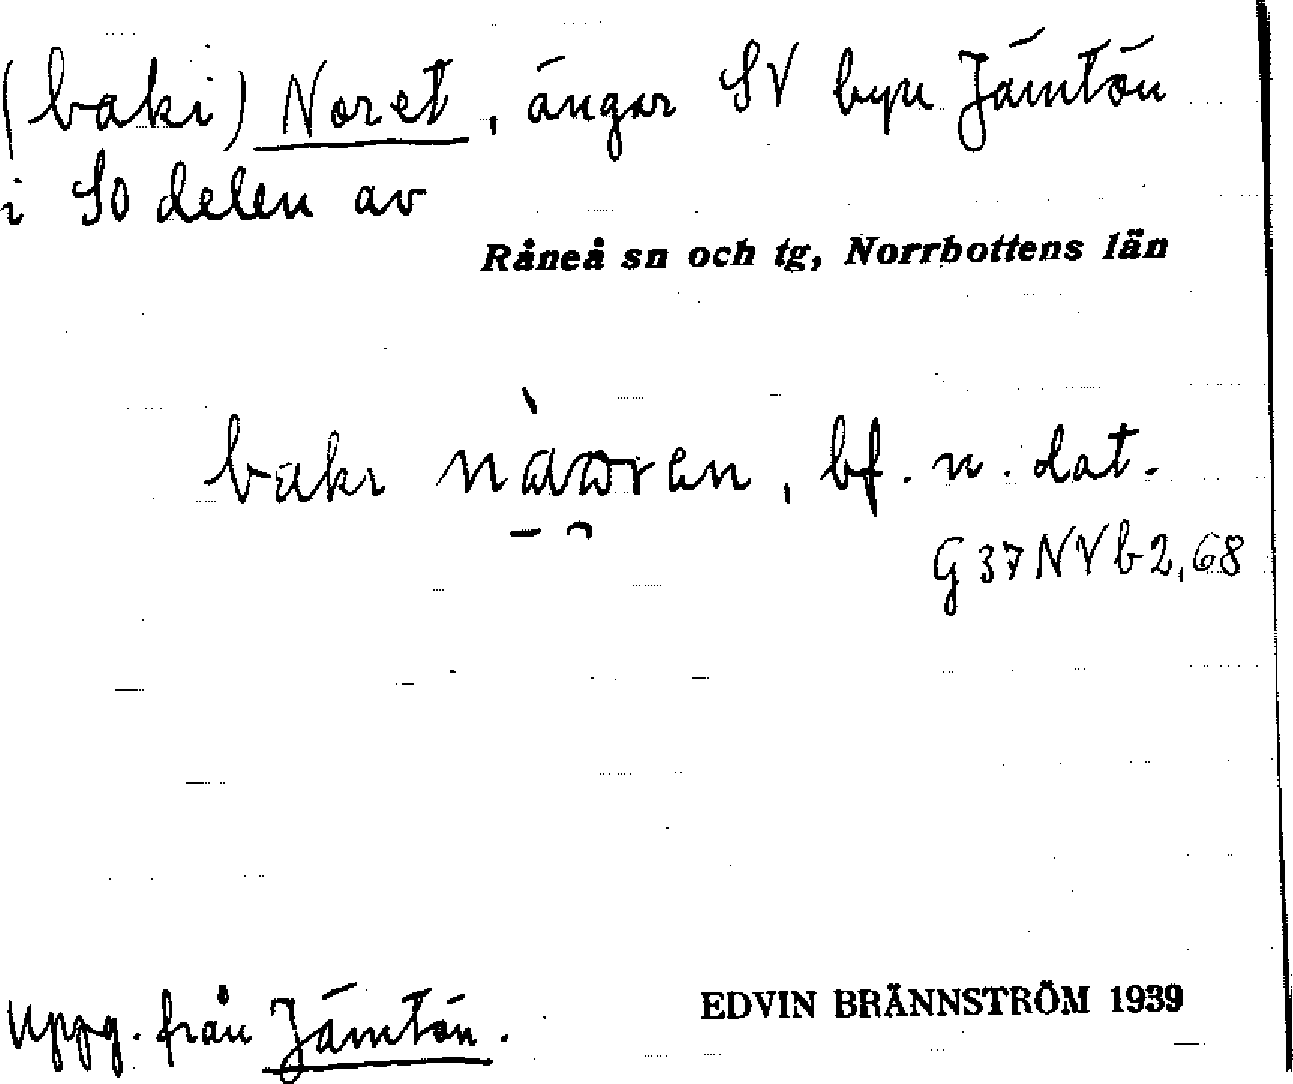 (baki) Noret, ängar SV byn Jämtön
i SO delen av
Råneå sn och tg, Norrbottens län
bf. n. dat.
G 37 NV b 2,68
Uppg. från Jämtön.
EDVIN BRÄNNSTRÖM 1939